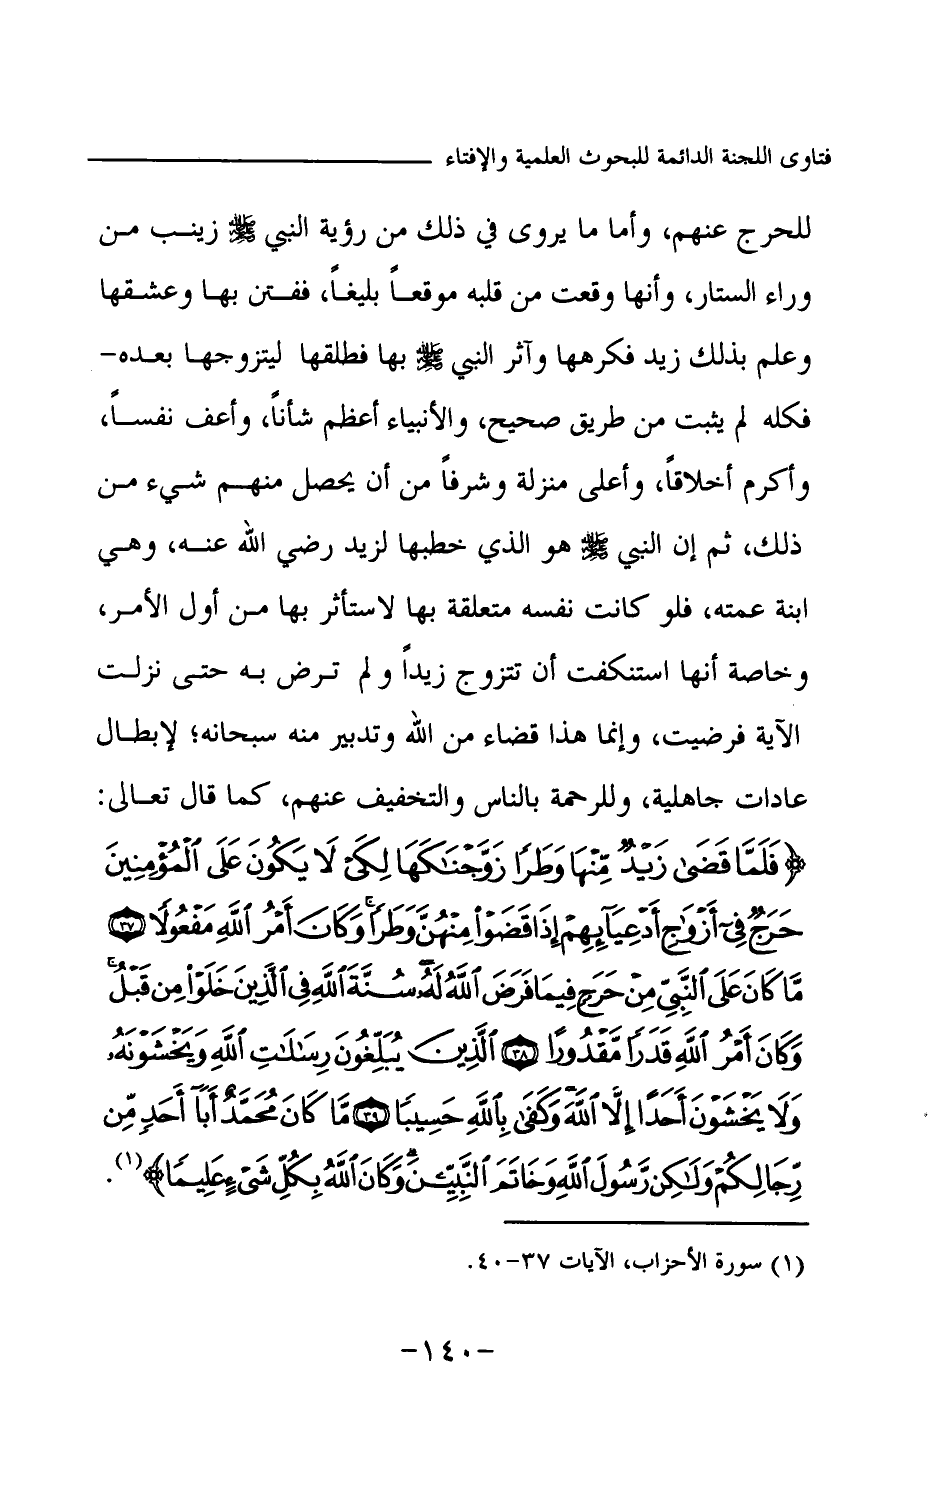 فتاوى اللجنة الدائمة للبحوث العلمية والإفتاء
للحرج عنهم، وأما ما يروى في ذلك من رؤية النبي ﷺ زينب من
وراء الستار، وأنها وقعت من قلبه موقعاً بليغاً، ففتن بها وعشقها
وعلم بذلك زيد فكرهها وآثر النبي ﷺ بها فطلقها ليتزوجها بعده-
فكله لم يثبت من طريق صحيح، والأنبياء أعظم شأناً، وأعف نفساً،
وأكرم أخلاقاً، وأعلى منزلة وشرفاً من أن يحصل منهم شيء من
ذلك، ثم إن النبي ﷺ هو الذي خطبها لزيد رضي الله عنه، وهي
ابنة عمته، فلو كانت نفسه متعلقة بها لاستأثر بها من أول الأمر،
وخاصة أنها استنكفت أن تتزوج زيداً ولم ترض به حتى نزلت
الآية فرضيت، وإنما هذا قضاء من الله وتدبير منه سبحانه؛ لإبطال
عادات جاهلية، وللرحمة بالناس والتخفيف عنهم، كما قال تعالى:
﴿ فَلَمَّا قَضَىٰ زَيْدٌ مِّنْهَا وَطَرًا زَوَّجْنَٰكَهَا لِكَىْ لَا يَكُونَ عَلَى ٱلْمُؤْمِنِينَ
حَرَجٌ فِىٓ أَزْوَٰجِ أَدْعِيَآئِهِمْ إِذَا قَضَوْا۟ مِنْهُنَّ وَطَرًا ۚ وَكَانَ أَمْرُ ٱللَّهِ مَفْعُولًا ﴿٣٧﴾
مَّا كَانَ عَلَى ٱلنَّبِىِّ مِنْ حَرَجٍ فِيمَا فَرَضَ ٱللَّهُ لَهُۥ ۖ سُنَّةَ ٱللَّهِ فِى ٱلَّذِينَ خَلَوْا۟ مِن قَبْلُ ۚ
وَكَانَ أَمْرُ ٱللَّهِ قَدَرًا مَّقْدُورًا ﴿٣٨﴾ ٱلَّذِينَ يُبَلِّغُونَ رِسَٰلَٰتِ ٱللَّهِ وَيَخْشَوْنَهُۥ
وَلَا يَخْشَوْنَ أَحَدًا إِلَّا ٱللَّهَ ۗ وَكَفَىٰ بِٱللَّهِ حَسِيبًا ﴿٣٩﴾ مَّا كَانَ مُحَمَّدٌ أَبَآ أَحَدٍ مِّن
رِّجَالِكُمْ وَلَٰكِن رَّسُولَ ٱللَّهِ وَخَاتَمَ ٱلنَّبِيِّـۧنَ ۗ وَكَانَ ٱللَّهُ بِكُلِّ شَىْءٍ عَلِيمًا ﴾ (١).
(١) سورة الأحزاب، الآيات ٣٧-٤٠.
-١٤٠-